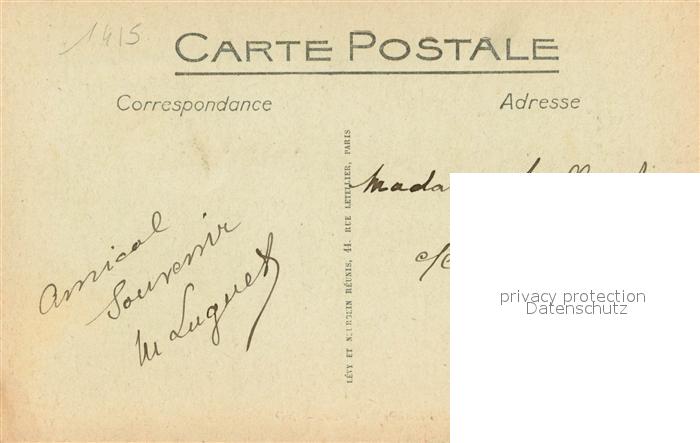 1415
CARTE POSTALE
Correspondance
Adresse
LÉVY ET NEURDEIN RÉUNIS, 44, RUE LETELLIER, PARIS
Amical
Souvenir
M Luguet
privacy protection
Datenschutz